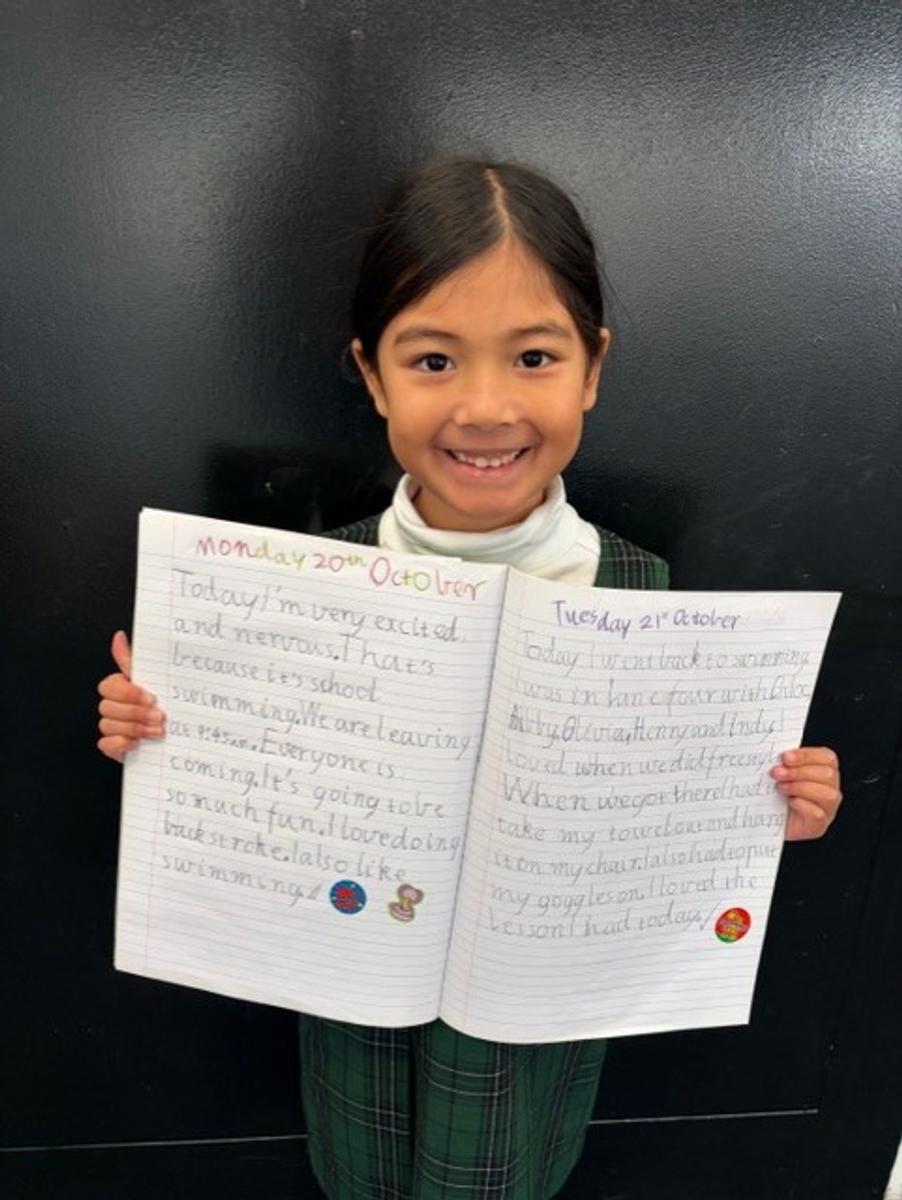 Monday 20th October
Today I'm very excited
and nervous. That's
because it's school
swimming. We are leaving
at 9:45am. Everyone is
coming. It's going to be
so much fun. I love doing
backstroke. I also like
swimming.
Tuesday 21st October
Today I went back to swimming.
I was in lane four with Chloe,
Abby, Olivia, Henry and Indy. I
loved when we did freestyle.
When we got there I had to
take my towel out and hang
it on my chair. I also had to put
my goggles on. I loved the
lesson I had today.